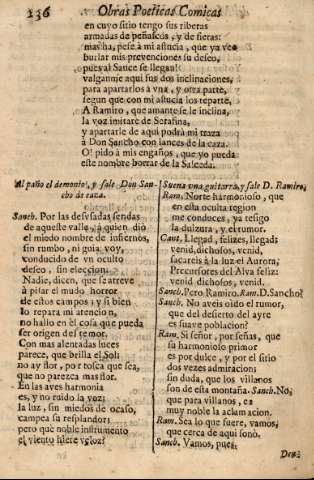 236 Obras Poeticas Comicas
en cuyo sitio tengo sus riberas
armadas de peñascos, y de fieras:
mas ha, pese à mi astucia, que ya veo
burlar mis prevenciones su deseo,
pues al Sauce se llegan!
valganme aqui sus dos inclinaciones,
para apartarlos à vna, y otra parte,
segun que con mi astucia los reparte,
A Ramiro, que amante se le inclina,
la voz imitarè de Serafina,
y apartarle de aqui podrà mi traza
à Don Sancho con lances de la caza.
O! pido à mis engaños, que yo pueda
este nombre borrar de la Salceda.
Al paño el demonio, y sale Don Sancho de caza.
Sanch. Por las desvsadas sendas
de aqueste valle, à quien diò
el miedo nombre de infiernos,
sin rumbo, ni guia, voy,
conducido de vn oculto
deseo, sin eleccion:
Nadie, dicen, que se atreve
à pitar el mudo horror
de estos campos; y si bien
lo repara mi atencion,
no hallo en èl cosa que pueda
ser origen del temor.
Con mas alentadas luces
parece, que brilla el Sol;
no ay flor, por tosca que sea,
que no parezca mas flor.
En las aves harmonia
es, y no ruido la voz;
la luz, sin miedos de ocaso,
campea sa resplandor;
pero què noble instrumento
el viento hiere veloz?
Suena vna guitarra, y sale D. Ramiro.
Ram. Norte harmonioso, que
en esta oculta region
me conduces, ya tesigo
la dulzura, y el rumor.
Cant. Llegad, felizes, llegad;
venid, dichosos, venid,
sacareis à la luz el Aurora,
Precursores del Alva feliz:
venid dichosos, venid.
Sanch. Pero Ramiro. Ram. D. Sancho?
Sanch. No aveis oido el rumor
que del desierto del ayre
es suave poblacion?
Ram. Si señor, por señas, que
su harmonioso primor
es por dulce, y por el sitio
dos vezes admiracion;
sin duda, que los villanos
son de esta montaña. Sanch. No,
que para villanos, es
muy noble la aclamacion.
Ram. Sea lo que fuere, vamos,
que cerca de aqui sonò.
Sanch. Vamos, pues;